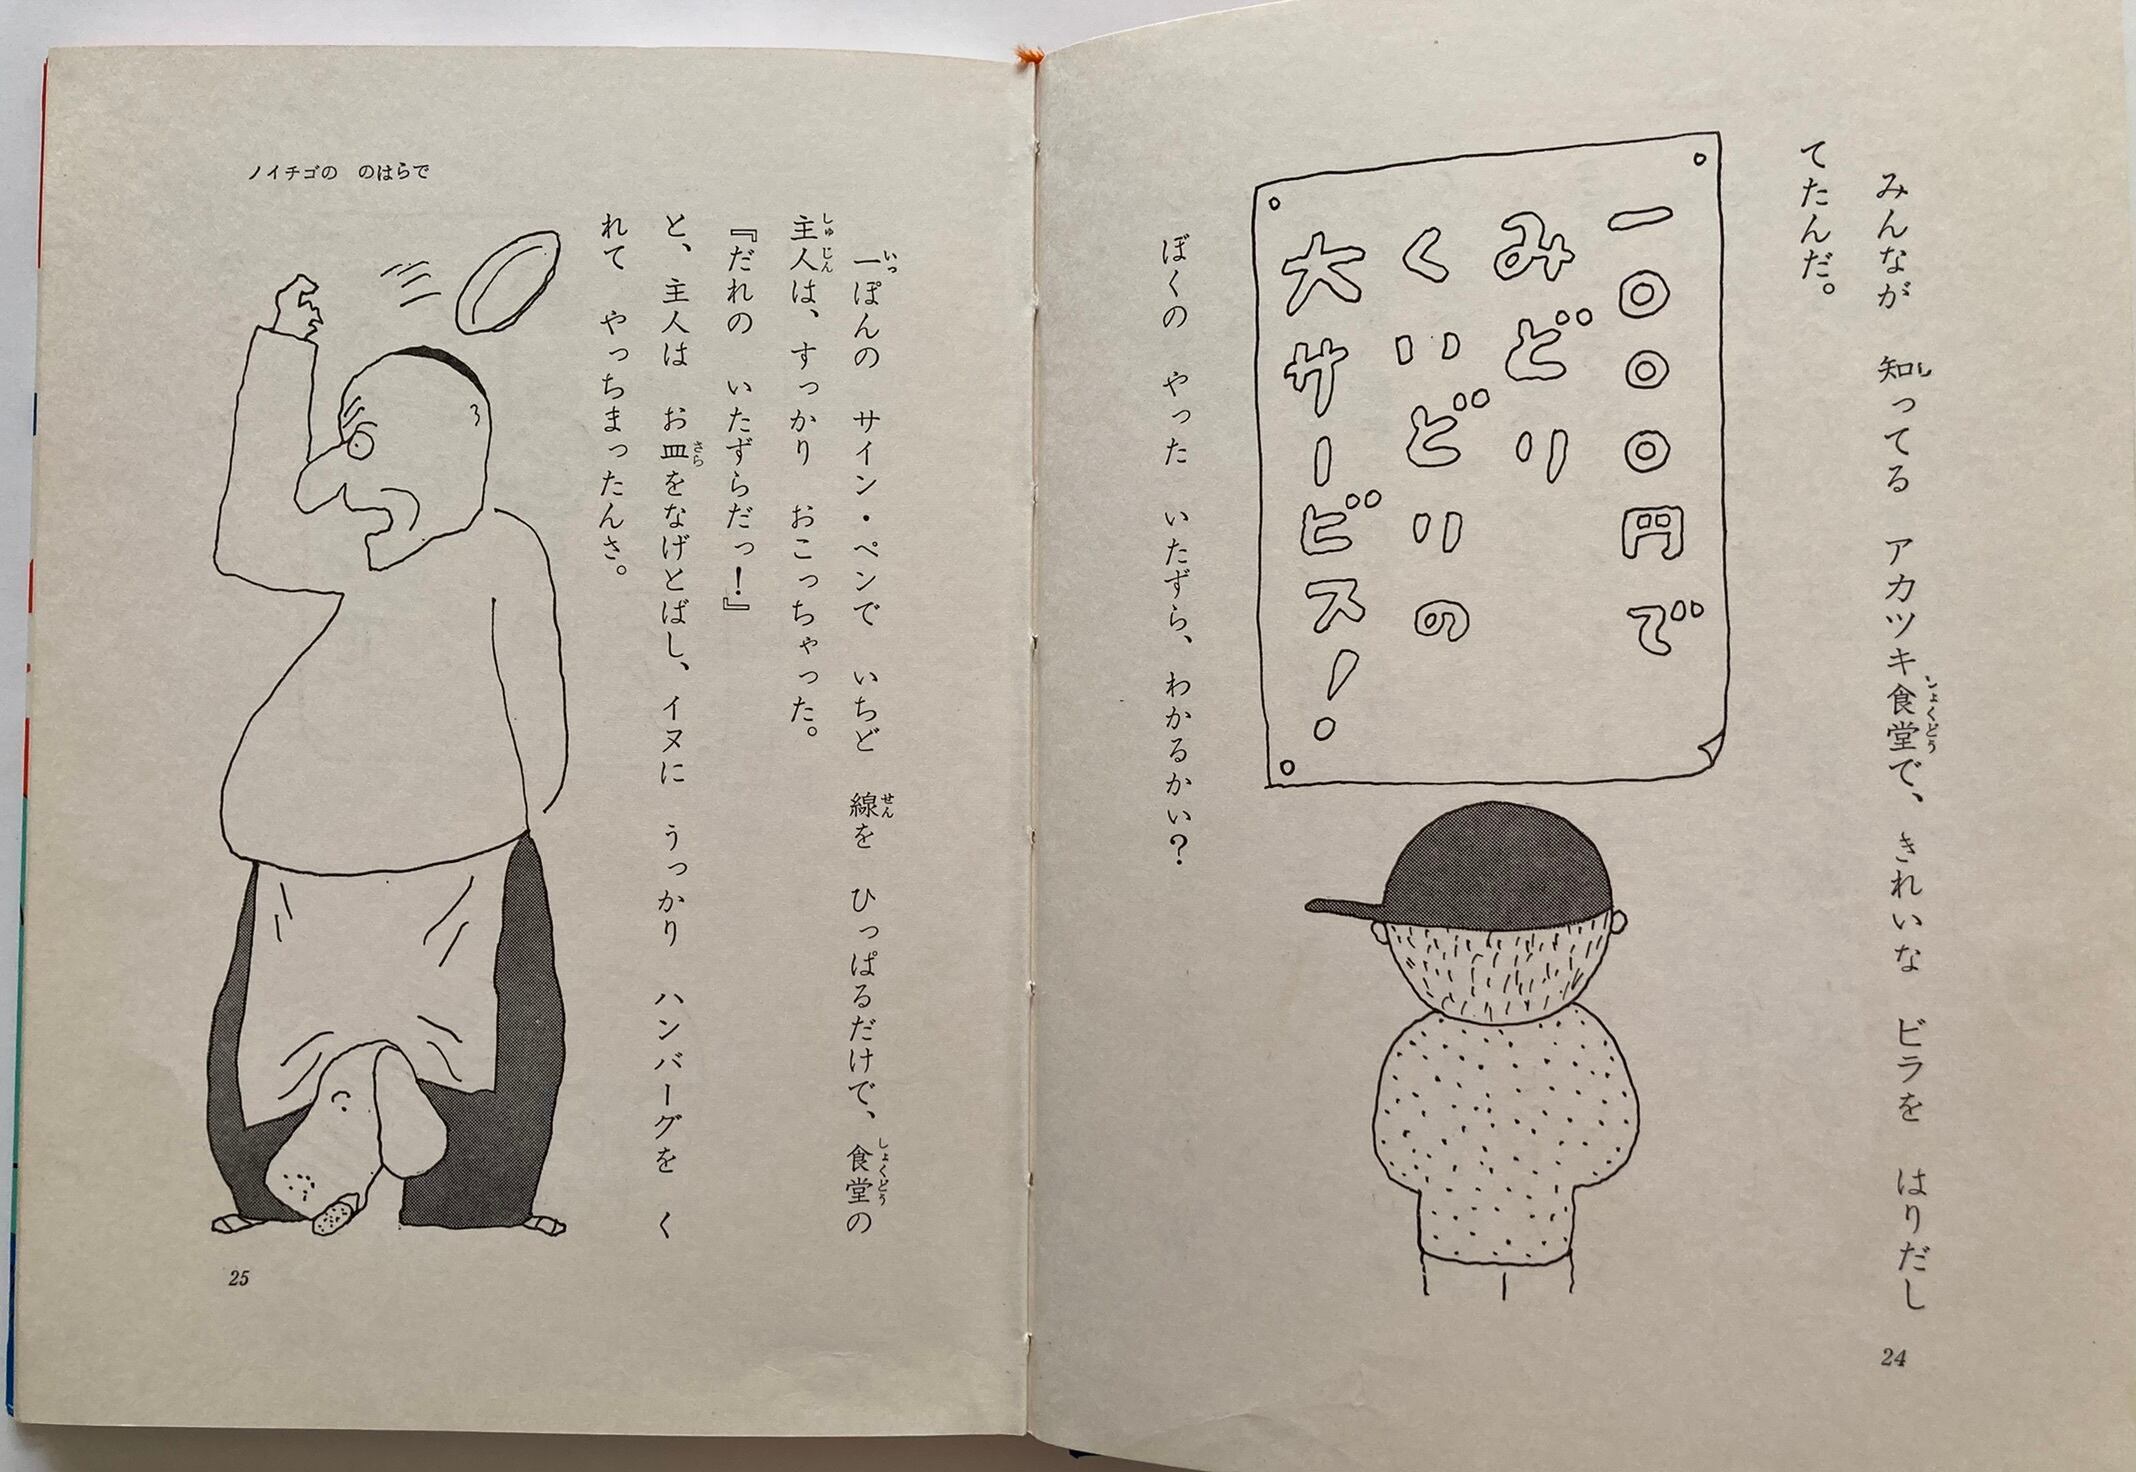 みんなが　知ってる　アカツキ食堂で、きれいな　ビラを　はりだし
てたんだ。
一〇〇〇円で
みどり
くいどりの
大サービス！
ぼくの　やった　いたずら、わかるかい？
24
一ぽんの　サイン・ペンで　いちど　線を　ひっぱるだけで、食堂の
主人は、すっかり　おこっちゃった。
『だれの　いたずらだっ！』
と、主人は　お皿をなげとばし、イヌに　うっかり　ハンバーグを　く
れて　やっちまったんさ。
ノイチゴの　のはらで
25